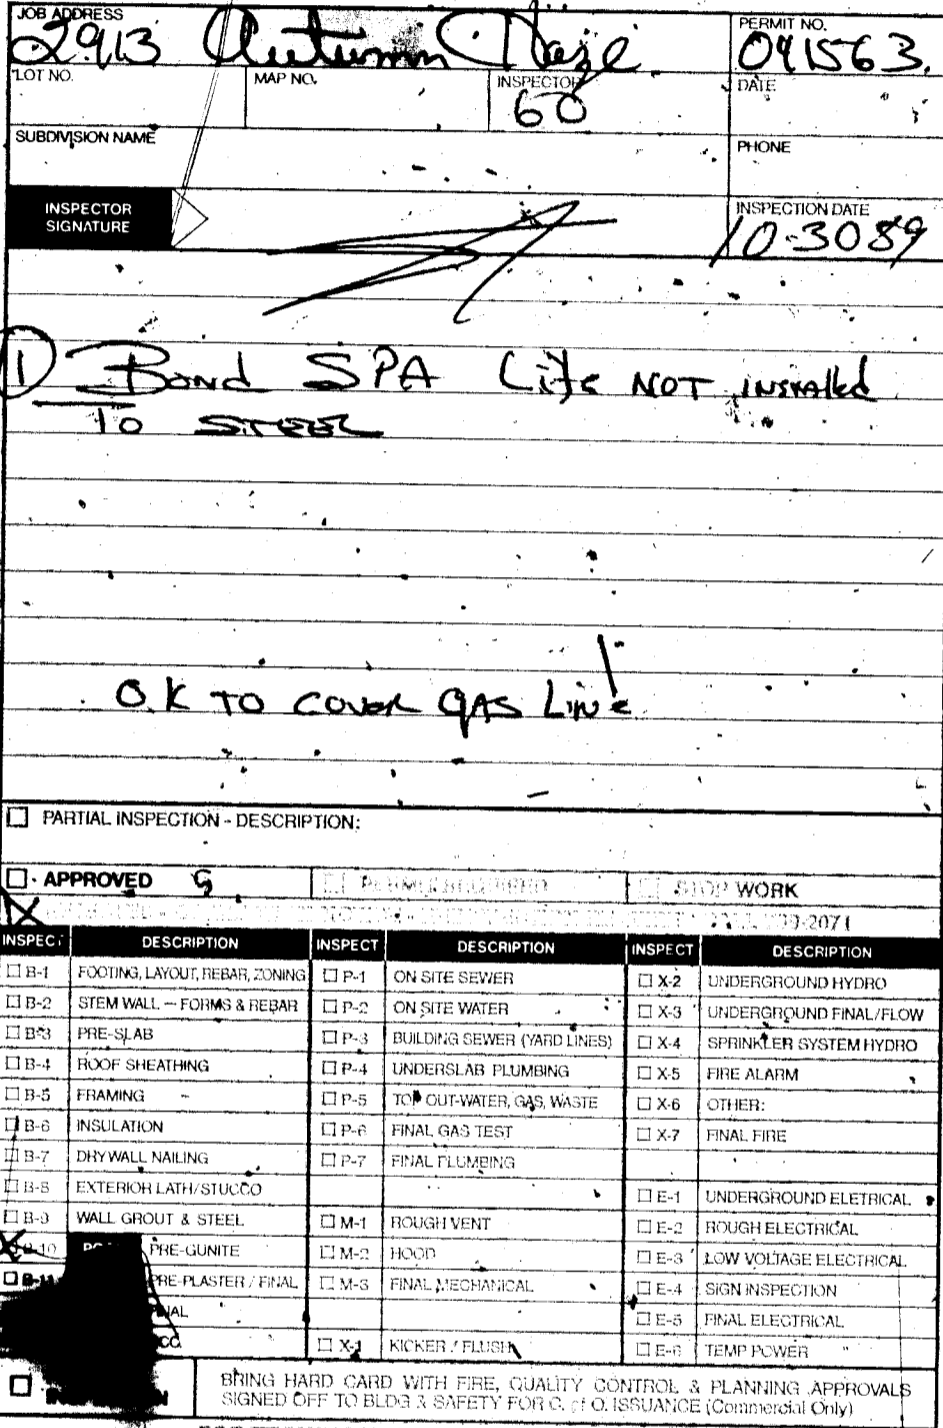 JOB ADDRESS
2913 Autumn Haze
PERMIT NO.
091563.
LOT NO.
MAP NO.
INSPECTOR
60
DATE
SUBDIVISION NAME
PHONE
INSPECTOR
SIGNATURE
INSPECTION DATE
10-3089
1 Bond SPA Lite NOT INSTALLED
TO STEEL
O.K TO COVER GAS LINE
PARTIAL INSPECTION - DESCRIPTION:
APPROVED
STOP WORK
-2071
INSPECT DESCRIPTION INSPECT DESCRIPTION INSPECT DESCRIPTION
B-1 FOOTING, LAYOUT, REBAR, ZONING P-1 ON SITE SEWER X-2 UNDERGROUND HYDRO
B-2 STEM WALL - FORMS & REBAR P-2 ON SITE WATER X-3 UNDERGROUND FINAL/FLOW
B-3 PRE-SLAB P-3 BUILDING SEWER (YARD LINES) X-4 SPRINKLER SYSTEM HYDRO
B-4 ROOF SHEATHING P-4 UNDERSLAB PLUMBING X-5 FIRE ALARM
B-5 FRAMING P-5 TOP OUT-WATER, GAS, WASTE X-6 OTHER:
B-6 INSULATION P-6 FINAL GAS TEST X-7 FINAL FIRE
B-7 DRYWALL NAILING P-7 FINAL PLUMBING
B-8 EXTERIOR LATH/STUCCO E-1 UNDERGROUND ELETRICAL
B-9 WALL GROUT & STEEL M-1 ROUGH VENT E-2 ROUGH ELECTRICAL
B-10 PRE-GUNITE M-2 HOOD E-3 LOW VOLTAGE ELECTRICAL
B-11 PRE-PLASTER / FINAL M-3 FINAL MECHANICAL E-4 SIGN INSPECTION
E-5 FINAL ELECTRICAL
X-1 KICKER / FLUSH E-6 TEMP POWER
BRING HARD CARD WITH FIRE, QUALITY CONTROL & PLANNING APPROVALS
SIGNED OFF TO BLDG & SAFETY FOR C. of O. ISSUANCE (Commercial Only)